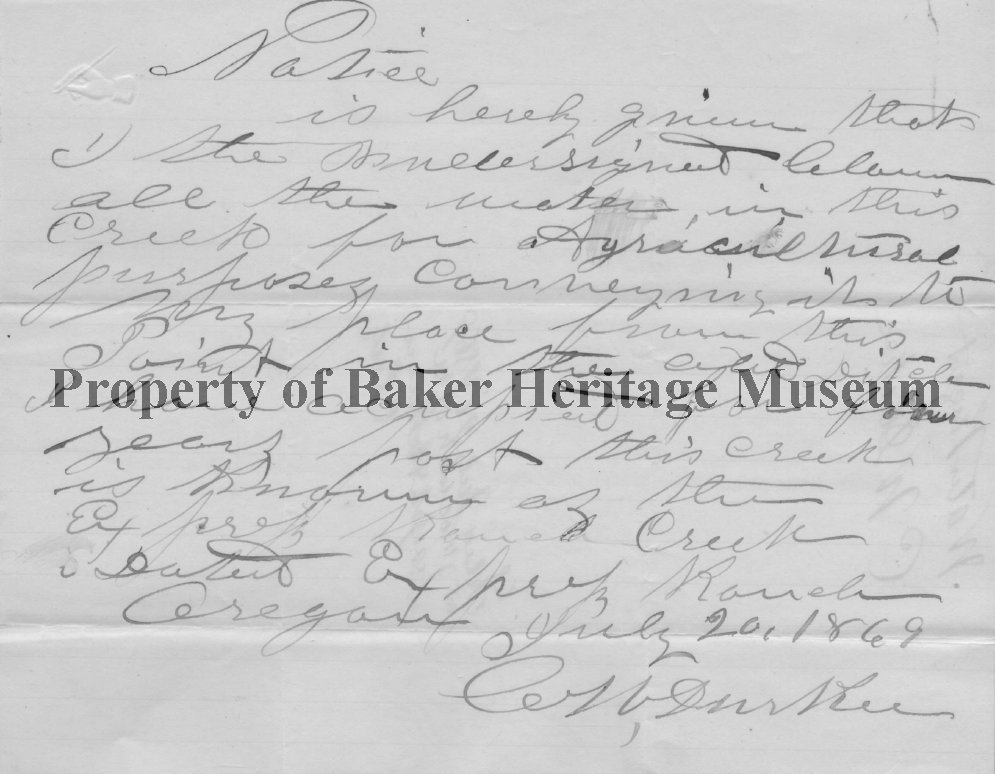 Notice
is hereby given that
I the undersigned Claim
all the water in this
Creek for Agricultural
purposes Conveying it to
My place from this
Point in the ditch
Property of Baker Heritage Museum
I have occupied for four
years past this Creek
is Known as the
Express Ranch Creek
Dated Express Ranch
Oregon July 20, 1869
C W, Durkee